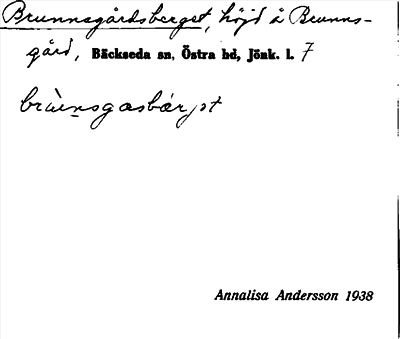 Brunnsgårdsberget, höjd å Brunns-
gård, Bäckseda sn, Östra hd, Jönk. l. 7
brùnsgasbárjət
Annalisa Andersson 1938